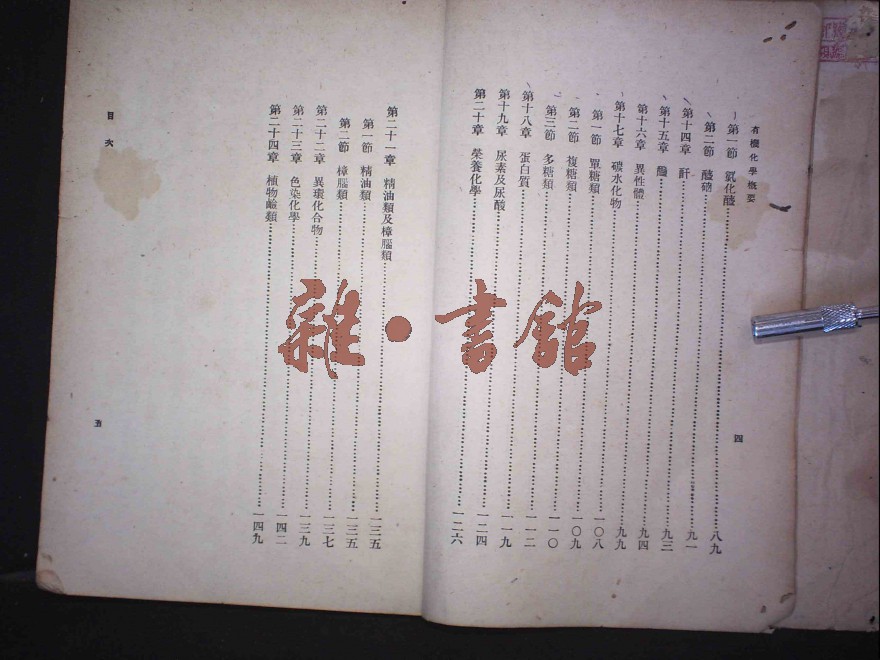 有機化學概要
第一節 八九
第二節 九一
第十四章 酐 九三
第十五章 九四
第十六章 異性體 九九
第十七章 碳水化物 一〇八
第一節 單糖類 一〇九
第二節 複糖類 一一〇
第三節 多糖類 一一二
第十八章 蛋白質 一一九
第十九章 尿素及尿酸 一二四
第二十章 榮養化學 一二六
四
第二十一章 精油類及樟腦類 一三五
第一節 精油類 一三五
第二節 樟腦類 一三七
第二十二章 異環化合物 一三九
第二十三章 色染化學 一四二
第二十四章 植物鹼類 一四九
目次
五
雜·書館